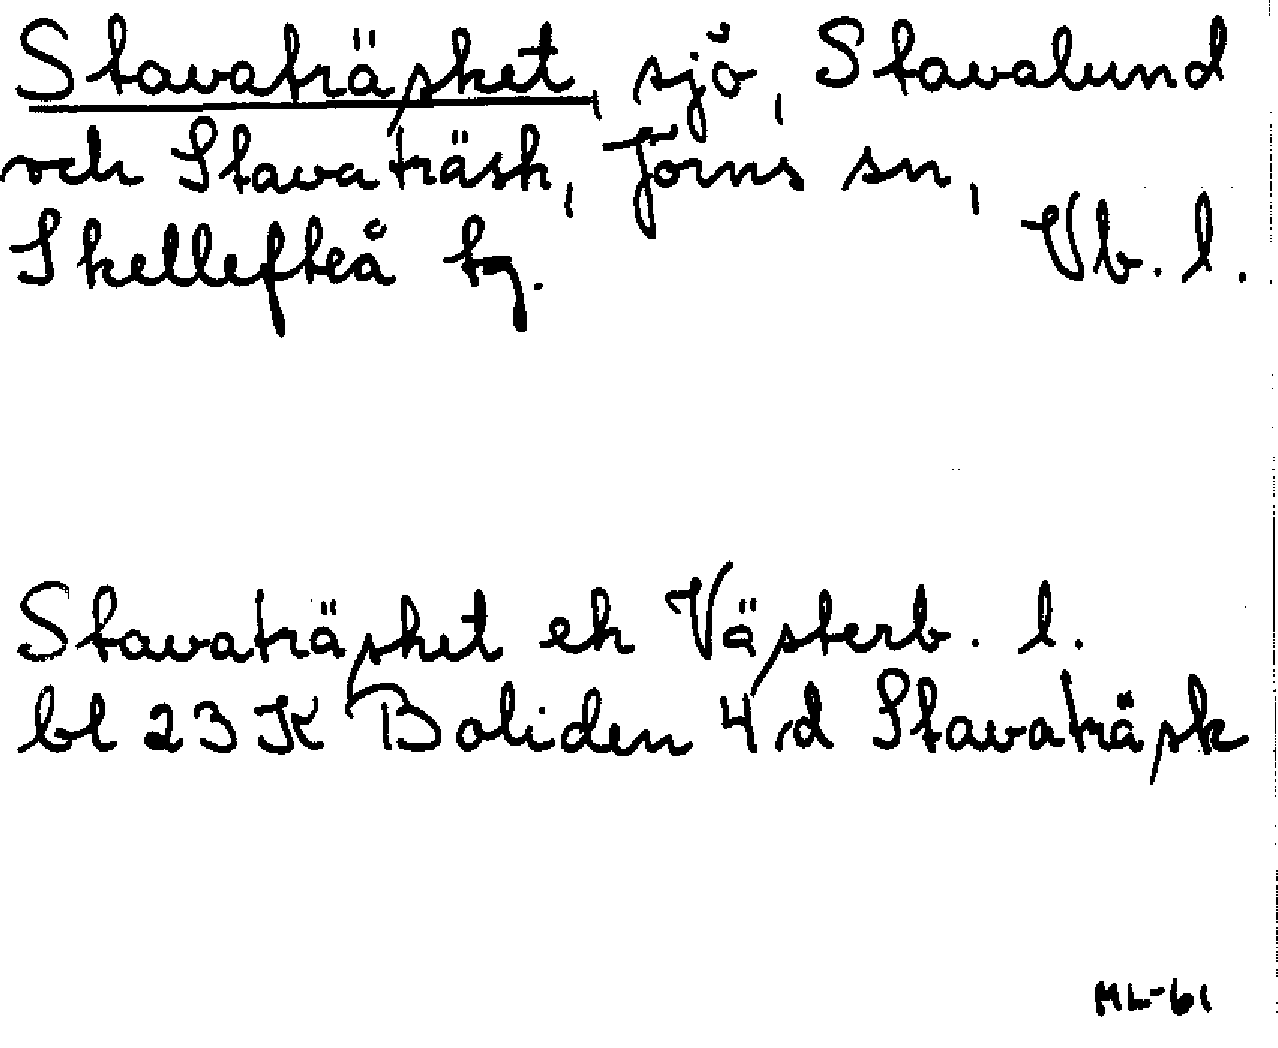 Stavaträsket, sjö, Stavalund
och Stavaträsk, Jörns sn,
Skellefteå tg. Vb. l.
Stavaträsket ek Västerb. l.
bl 23K Boliden 4d Stavaträsk
ML-61